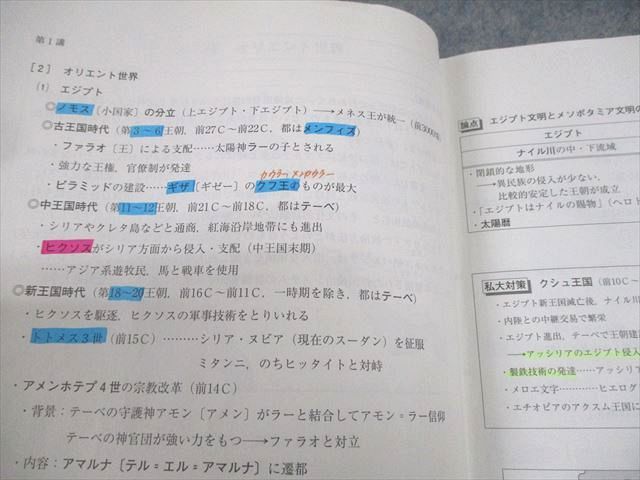 第1講
[2] オリエント世界
(1) エジプト
◎ノモス〔小国家〕の分立（上エジプト・下エジプト）→メネス王が統一（前3000年
◎古王国時代（第3〜6王朝，前27C〜前22C，都はメンフィス）
・ファラオ〔王〕による支配……太陽神ラーの子とされる
・強力な王権，官僚制が発達
カフラー，メンカウラー
・ピラミッドの建設……ギザ〔ギゼー〕のクフ王のものが最大
◎中王国時代（第11〜12王朝，前21C〜前18C，都はテーベ）
・シリアやクレタ島などと通商，紅海沿岸地帯にも進出
・ヒクソスがシリア方面から侵入・支配（中王国末期）
……アジア系遊牧民，馬と戦車を使用
◎新王国時代（第18〜20王朝，前16C〜前11C，一時期を除き，都はテーベ）
・ヒクソスを駆逐，ヒクソスの軍事技術をとりいれる
・トトメス3世（前15C）………シリア・ヌビア（現在のスーダン）を征服
ミタンニ，のちヒッタイトと対峙
・アメンホテプ4世の宗教改革（前14C）
・背景：テーベの守護神アモン〔アメン〕がラーと結合してアモン＝ラー信仰
テーベの神官団が強い力をもつ→ファラオと対立
・内容：アマルナ〔テル＝エル＝アマルナ〕に遷都
論点 エジプト文明とメソポタミア文明の
エジプト
ナイル川の中・下流域
・閉鎖的な地形
→異民族の侵入が少ない，
比較的安定した王朝が成立
・「エジプトはナイルの賜物」（ヘロト
・太陽暦
私大対策 クシュ王国（前10C〜
・エジプト新王国滅亡後，ナイル川
・内陸との中継交易で繁栄
・エジプト進出，テーベで王朝建設
→アッシリアのエジプト侵入
・製鉄技術の発達……アッシリア
・メロエ文字…………ヒエログ
・エチオピアのアクスム王国に